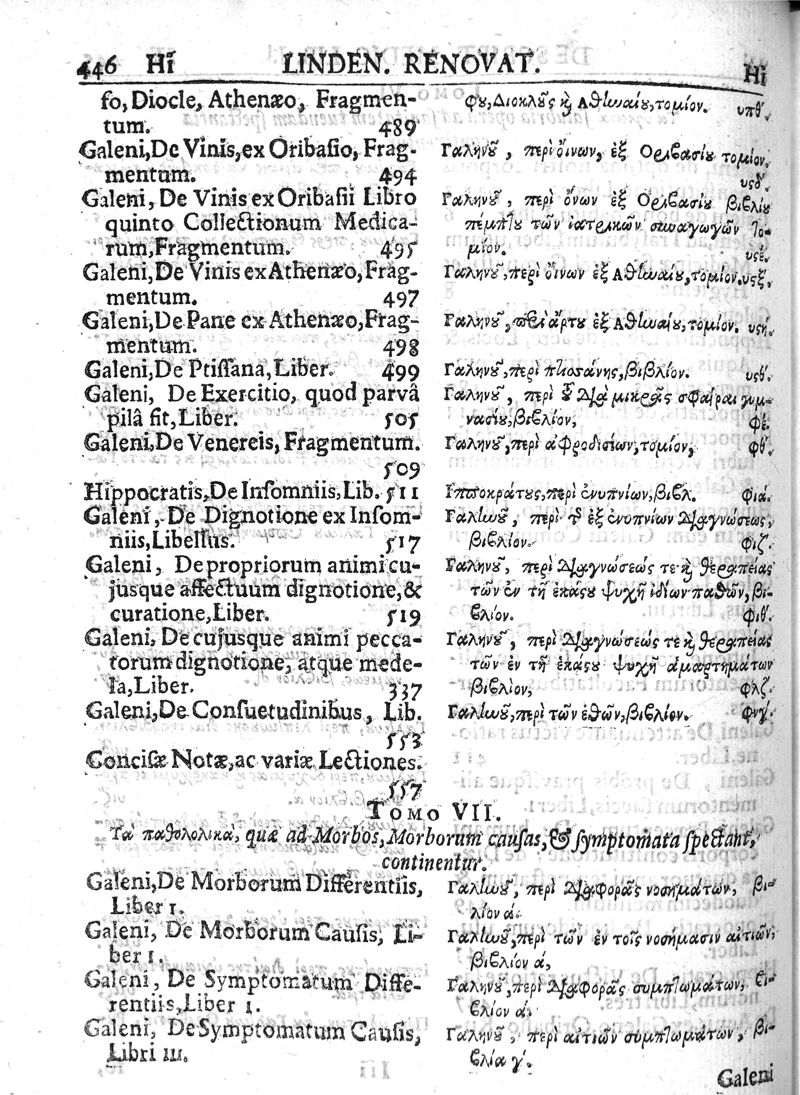 446 Hi LINDEN. RENOVAT. Hi
fo, Diocle, Athenæo, Fragmen-
tum. 489
Galeni, De Vinis, ex Oribasio, Frag-
mentum. 494
Galeni, De Vinis ex Oribasii Libro
quinto Collectionum Medica-
rum, Fragmentum. 495
Galeni, De Vinis ex Athenæo, Frag-
mentum. 497
Galeni, De Pane ex Athenæo, Frag-
mentum. 498
Galeni, De Ptissana, Liber. 499
Galeni, De Exercitio, quod parvâ
pilâ fit, Liber. 505
Galeni, De Venereis, Fragmentum.
509
Hippocratis, De Insomniis, Lib. 511
Galeni, De Dignotione ex Insom-
niis, Libellus. 517
Galeni, De propriorum animi cu-
jusque affectuum dignotione, &
curatione, Liber. 519
Galeni, De cujusque animi pecca-
torum dignotione, atque mede-
la, Liber. 337
Galeni, De Consuetudinibus, Lib.
553
Concisæ Notæ, ac variæ Lectiones.
557
φου, Διοκλοῦς καὶ Ἀθηναίου, τομίον. υπθ´.
Γαληνοῦ, περὶ οἴνων, ἐξ Οριβασίου τομίον.
υϟδ´.
Γαληνοῦ, περὶ οἴνων ἐξ Οριβασίου βιβλίου
πέμπτου τῶν ἰατρικῶν συναγωγῶν το-
μίον. υϟέ.
Γαληνοῦ, περὶ οἴνων ἐξ Ἀθηναίου, τομίον. υϟξ.
Γαληνοῦ, περὶ ἄρτου ἐξ Ἀθηναίου, τομίον. υϟή.
Γαληνοῦ, περὶ πτισάνης, βιβλίον. υϟθ´.
Γαληνοῦ, περὶ τοῦ Διὰ μικρᾶς σφαίραι γυμ-
νασίου, βιβλίον, φέ.
Γαληνοῦ, περὶ ἀφροδισίων, τομίον, φθ´.
Ιπποκράτους, περὶ ἐνυπνίων, βιβλ. φιά.
Γαληνοῦ, περὶ τῆς ἐξ ἐνυπνίων Διαγνώσεως,
βιβλίον. φιζ´.
Γαληνοῦ, περὶ Διαγνώσεώς τε καὶ θεραπείας
τῶν ἐν τῇ ἑκάστου ψυχῇ ἰδίων παθῶν, βι-
βλίον. φιθ´.
Γαληνοῦ, περὶ Διαγνώσεώς τε καὶ θεραπείας
τῶν ἐν τῇ ἑκάστου ψυχῇ ἁμαρτημάτων
βιβλίον, φλζ´.
Γαληνοῦ, περὶ τῶν ἐθῶν, βιβλίον. φνγ´.
TOMO VII.
Τα παθολολικά, quæ ad Morbos, Morborum causas, & symptomata spectant,
continentur.
Galeni, De Morborum Differentiis,
Liber 1.
Galeni, De Morborum Causis, Li-
ber 1.
Galeni, De Symptomatum Diffe-
rentiis, Liber 1.
Galeni, De Symptomatum Causis,
Libri III.
Γαληνοῦ, περὶ Διαφορᾶς νοσημάτων, βι-
βλίον ά.
Γαληνοῦ, περὶ τῶν ἐν τοῖς νοσήμασιν αἰτιῶν,
βιβλίον ά,
Γαληνοῦ, περὶ Διαφορᾶς συμπτωμάτων, βι-
βλίον ά.
Γαληνοῦ, περὶ αἰτιῶν συμπτωμάτων, βι-
βλία γ´.
Galeni